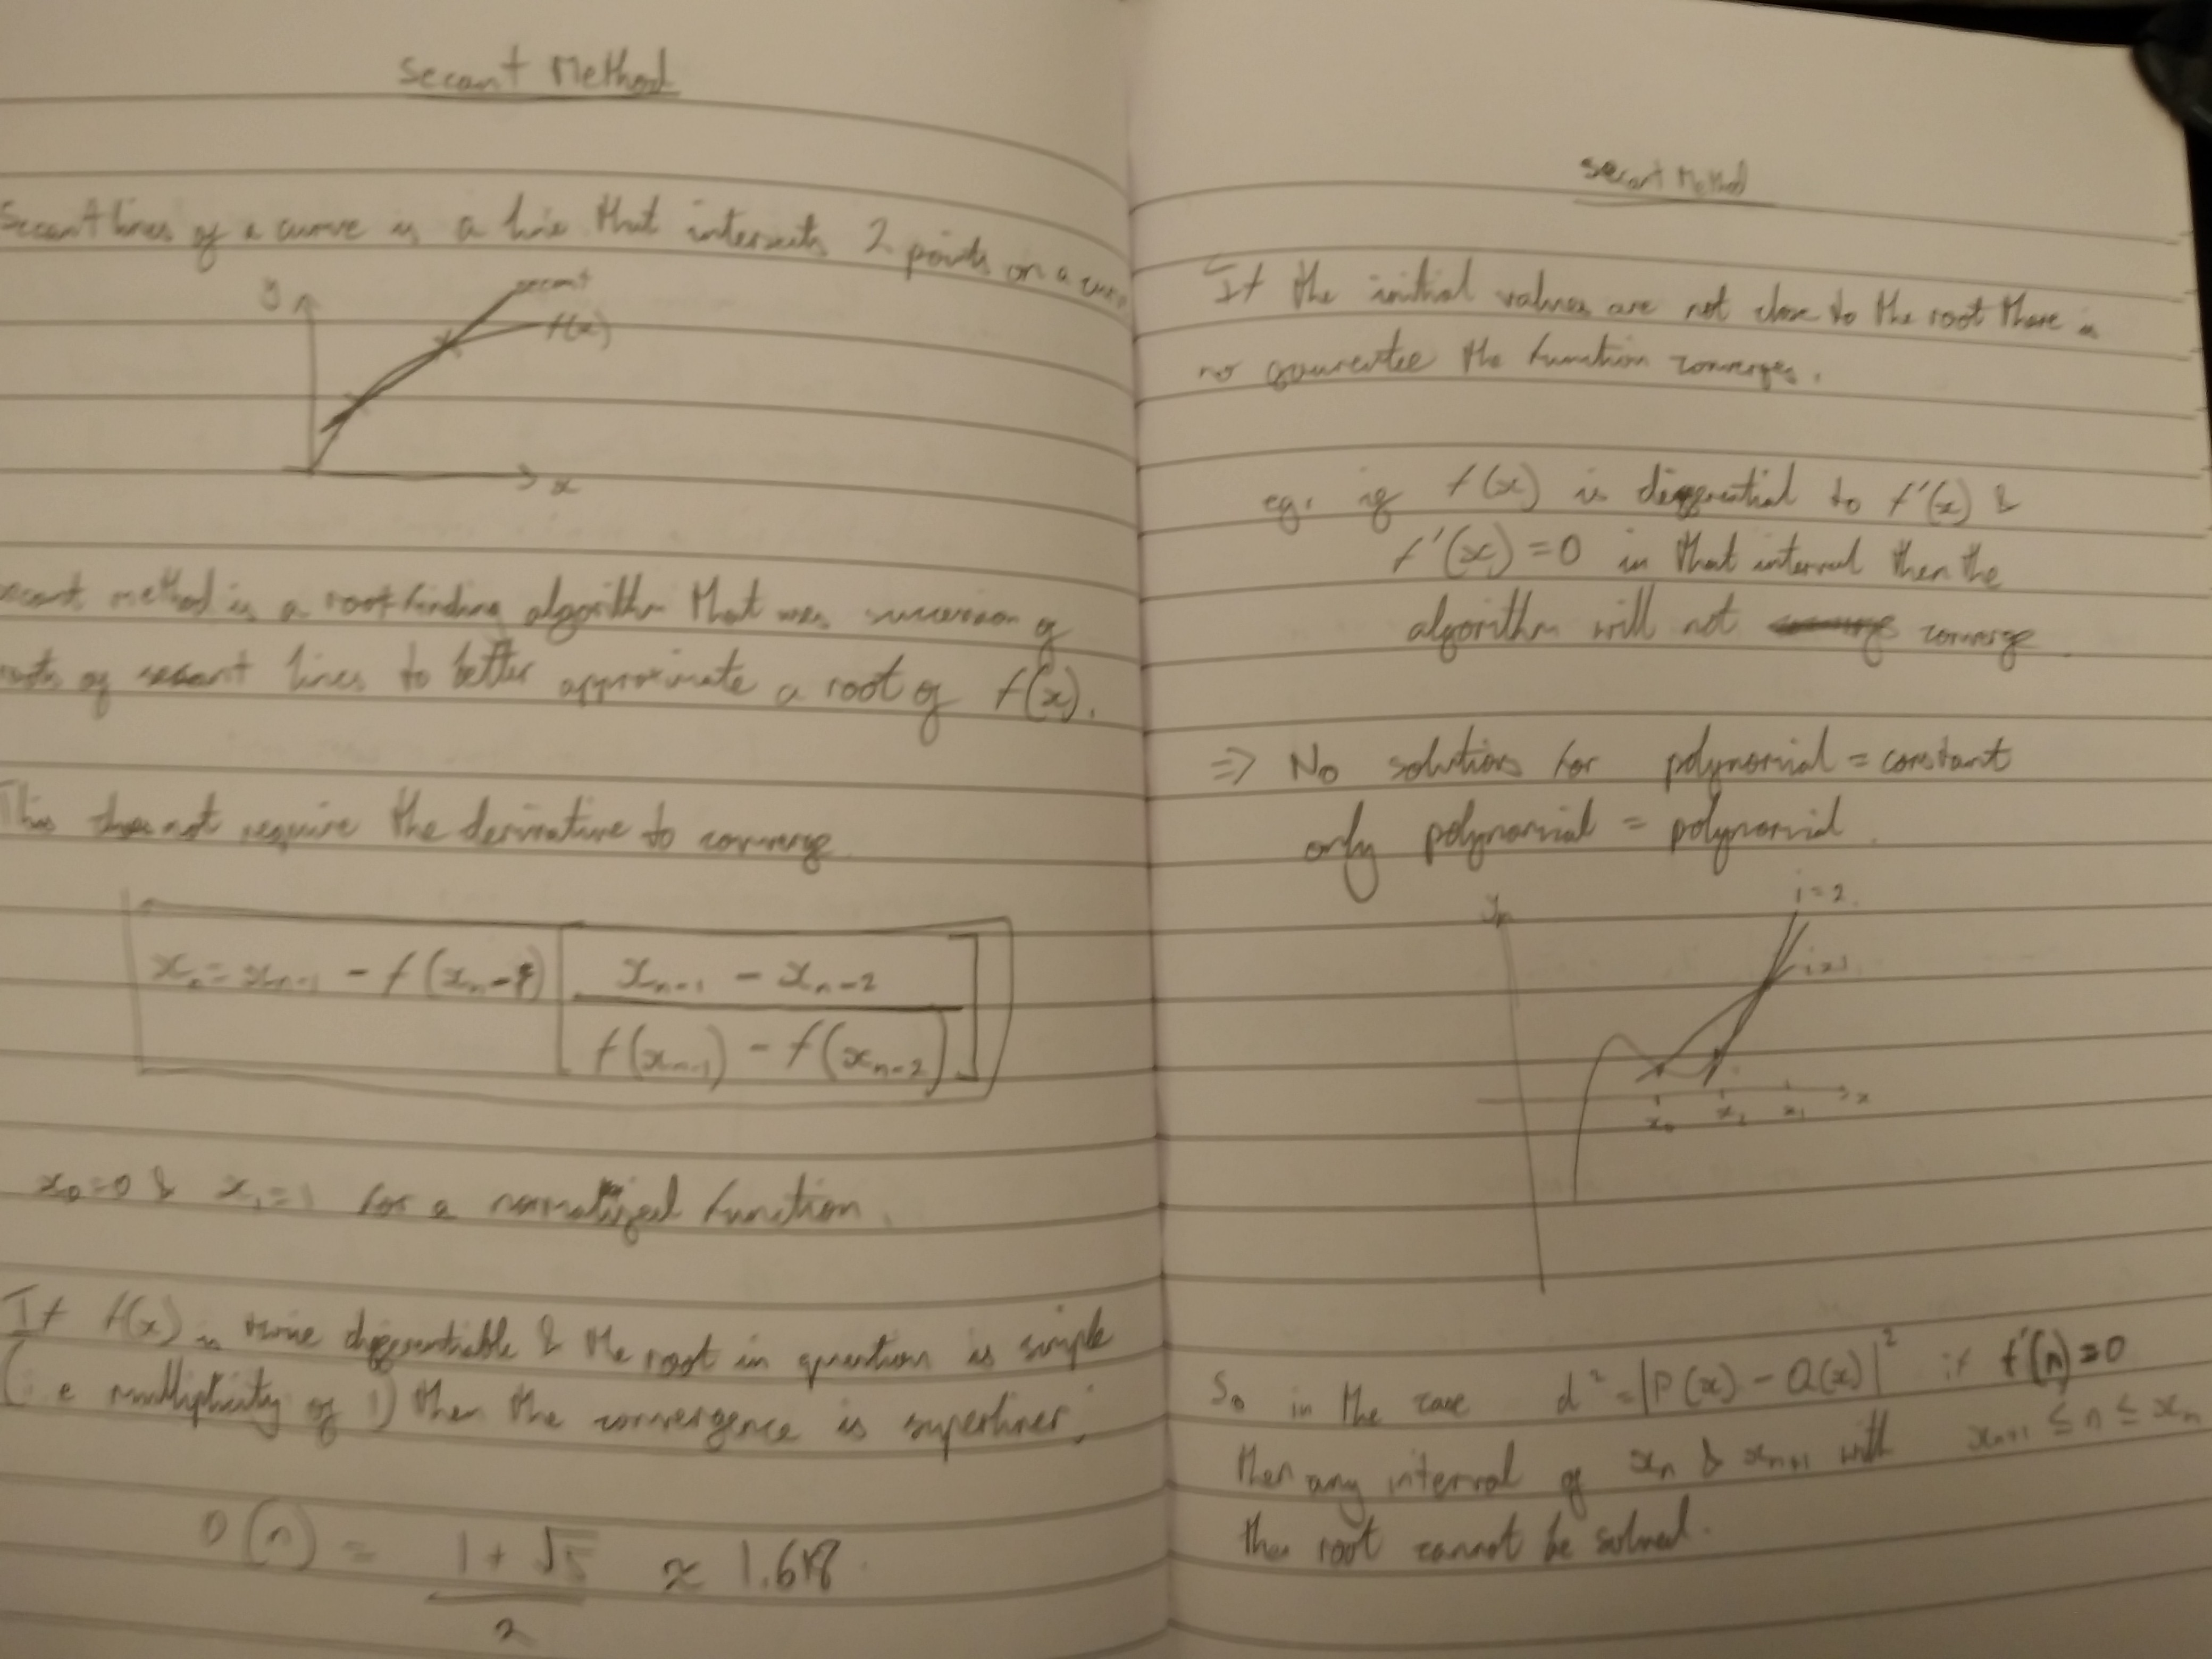 Secant Method
Secant lines of a curve is a line that intersects 2 points on a curve
y
secant
f(x)
x
secant method is a root finding algorithm that uses succession of
roots of secant lines to better approximate a root of f(x).
This does not require the derivative to converge
xₙ = xₙ₋₁ - f(xₙ₋₁) [ (xₙ₋₁ - xₙ₋₂) / (f(xₙ₋₁) - f(xₙ₋₂)) ]
x₀=0 & x₁=1 for a normalized function.
If f(x) is twice differentiable & the root in question is simple
(i.e multiplicity of 1) then the convergence is superlinear.
O(n) = (1 + √5) / 2 ≈ 1.618
Secant Method
If the initial values are not close to the root there is
no guarentee the function converges.
eg. if f(x) is differential to f'(x) &
f'(x)=0 in that interval then the
algorithm will not converge
⇒ No solutions for polynomial = constant
only polynomial = polynomial.
y
i=2
i=1
x
x₀ x₂ x₁
So in the case d² = |P(x) - Q(x)|² if f'(n)=0
then any interval of xₙ & xₙ₊₁ with xₙ₊₁ ≤ n ≤ xₙ
the root cannot be solved.